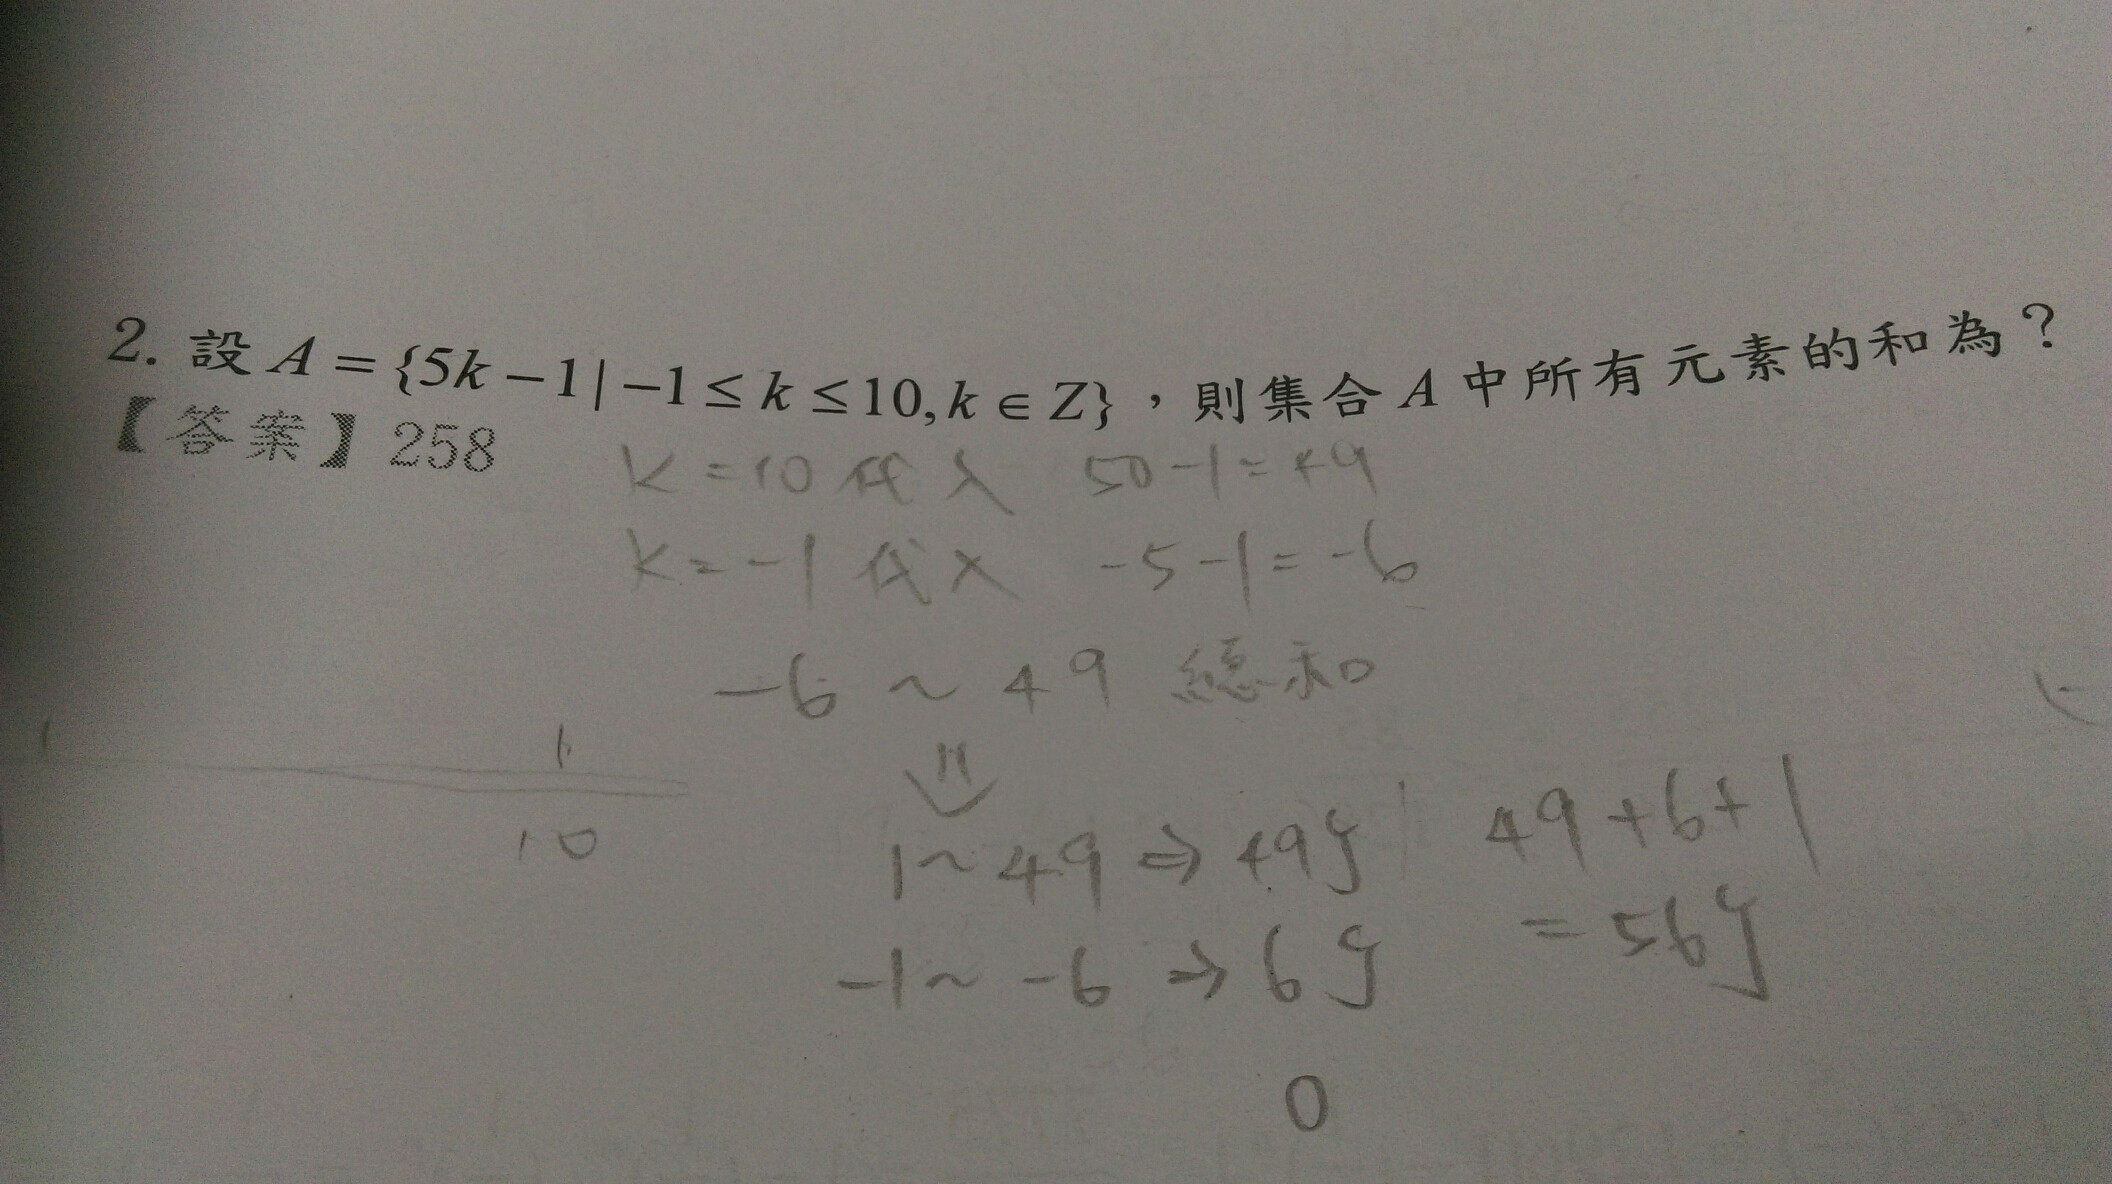 2. 設 A = {5k − 1 | −1 ≤ k ≤ 10, k ∈ Z}，則集合 A 中所有元素的和為？
【答案】258
k = 10 代入 50 - 1 = 49
k = -1 代入 -5 - 1 = -6
-6 ~ 49 總和
1
10
1 ~ 49 ⇒ 49個
49 + 6 + 1
-1 ~ -6 ⇒ 6個
= 56個
0